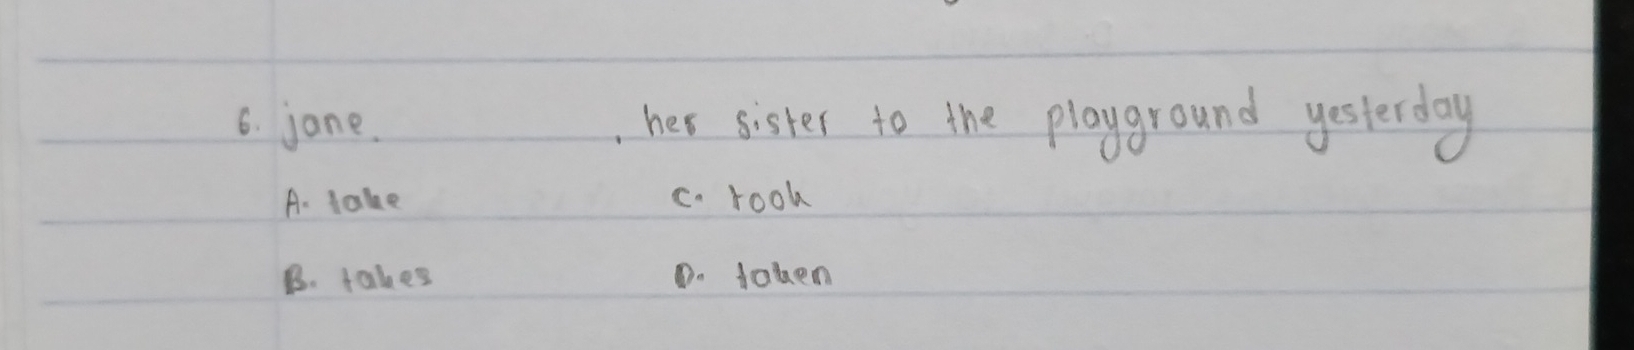 6. jane. . her sister to the playground yesterday
A. take C. took
B. takes D. taken